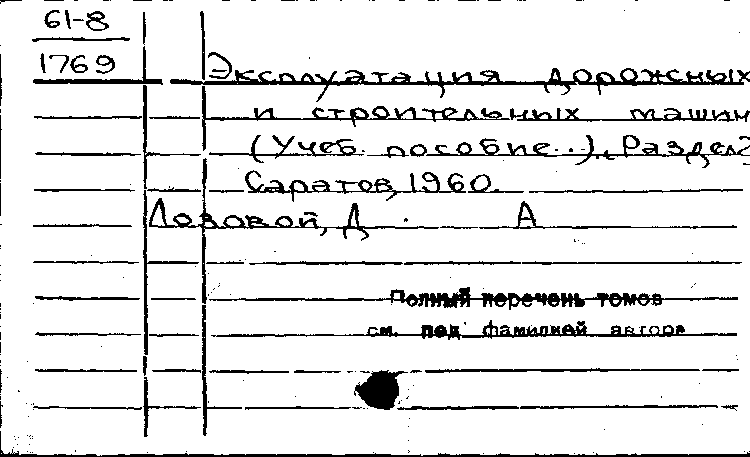 61-8
1769
Эксплуатация дорожных
и строительных машин
(Учеб. пособие...). Раздел 2
Саратов, 1960.
Лозовой, Д. А
Полный перечень томов
см. под фамилией автора